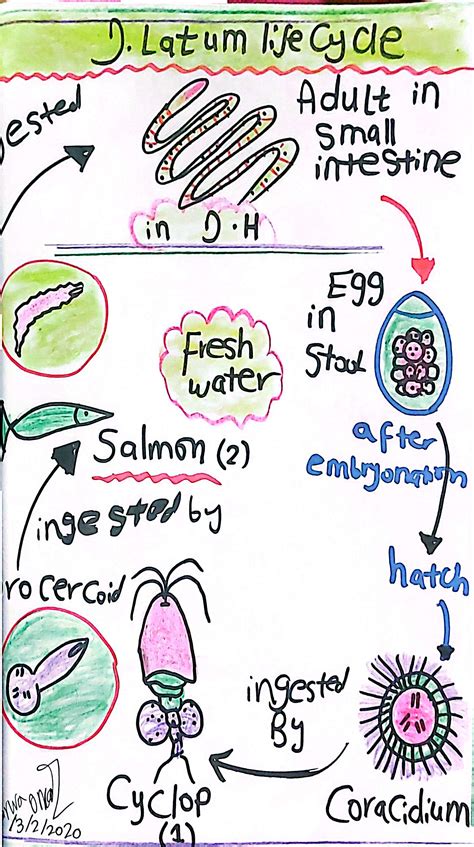 D. Latum life Cycle
ested
Adult in
small
intestine
in D.H
Egg
in
Stool
Fresh
water
after
embryonation
Salmon (2)
ingested by
hatch
rocercoid
ingested
By
Cyclop
(1)
Coracidium
/3/2/2020